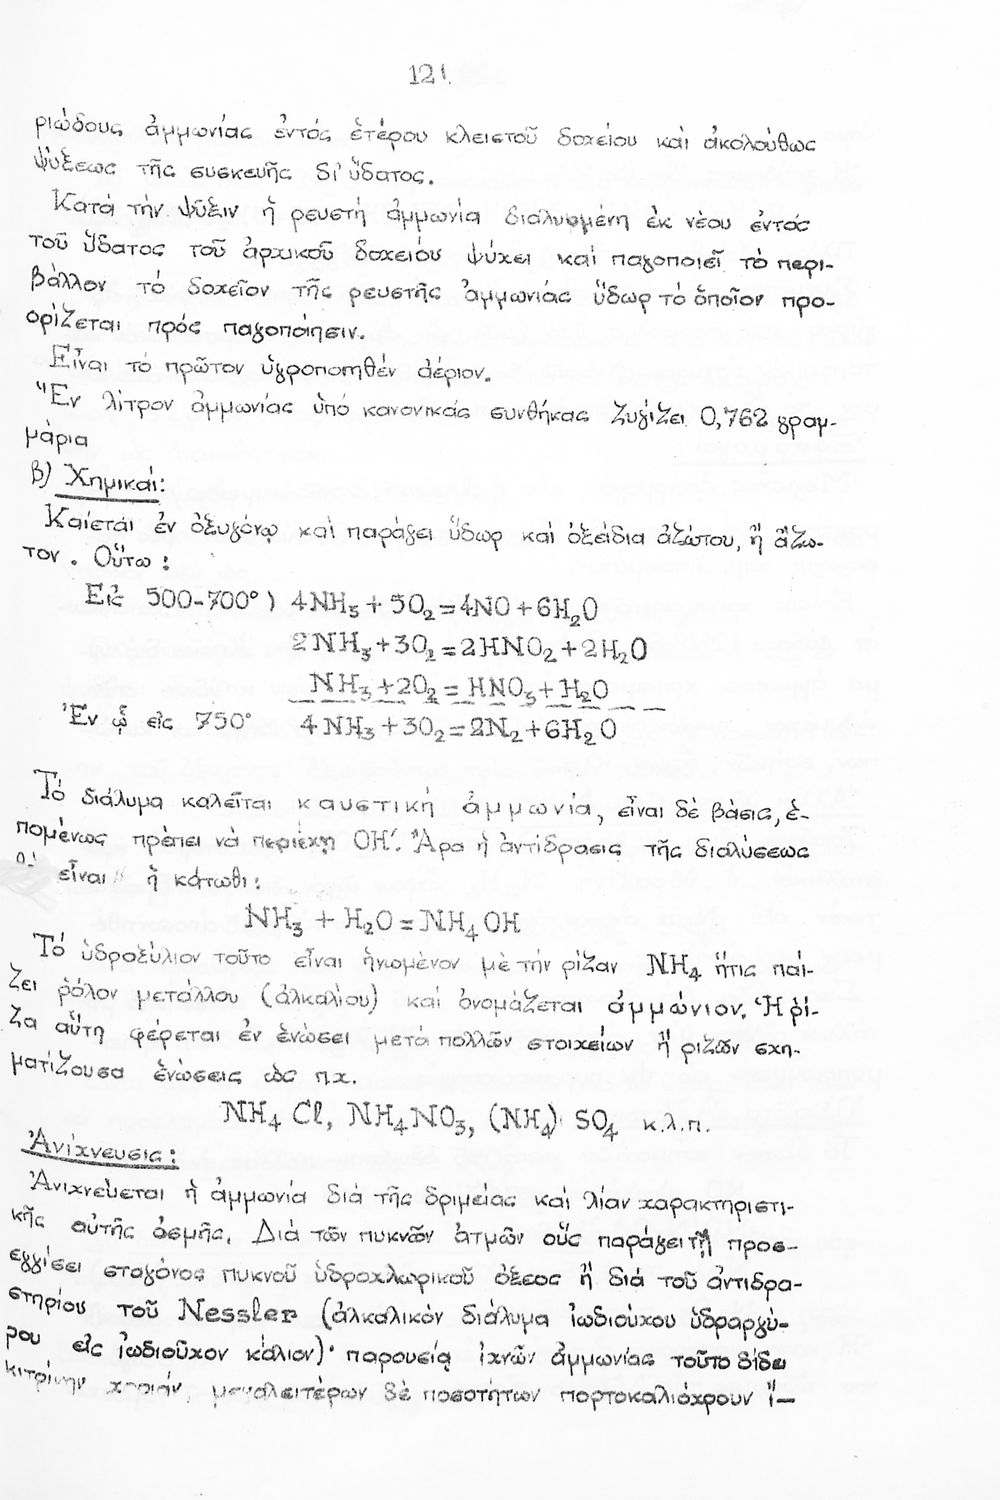 121.
ριώδους ἀμμωνίας ἐντός ἑτέρου κλειστοῦ δοχείου καί ἀκολούθως
ψύξεως τῆς συσκευῆς δι' ὕδατος.
Κατά τήν ψῦξιν ἡ ρευστή ἀμμωνία διαλυομένη ἐκ νέου ἐντός
τοῦ ὕδατος τοῦ ἀρχικοῦ δοχείου ψύχει καί παγοποιεῖ τό περι-
βάλλον τό δοχεῖον τῆς ρευστῆς ἀμμωνίας ὕδωρ τό ὁποῖον προ-
ορίζεται πρός παγοποίησιν.
Εἶναι τό πρῶτον ὑγροποιηθέν ἀέριον.
Ἕν λίτρον ἀμμωνίας ὑπό κανονικάς συνθήκας ζυγίζει 0,762 γραμ-
μάρια
β) Χημικαί:
Καίεται ἐν ὀξυγόνῳ καί παράγει ὕδωρ καί ὀξείδια ἀζώτου, ἤ ἄζω-
τον. Οὕτω:
Εἰς 500-700°) 4NH₃+5O₂=4NO+6H₂O
2NH₃+3O₂=2HNO₂+2H₂O
NH₃+2O₂=HNO₃+H₂O
Ἐν ᾧ εἰς 750° 4NH₃+3O₂=2N₂+6H₂O
Τό διάλυμα καλεῖται καυστική ἀμμωνία, εἶναι δέ βάσις, ἑ-
πομένως πρέπει νά περιέχῃ OH'. Ἄρα ἡ ἀντίδρασις τῆς διαλύσεως
εἶναι ἡ κάτωθι:
NH₃ + H₂O = NH₄OH
Τό ὑδροξύλιον τοῦτο εἶναι ἡνωμένον μέ τήν ρίζαν NH₄ ἥτις παί-
ζει ρόλον μετάλλου (ἀλκαλίου) καί ὀνομάζεται ἀμμώνιον. Ἡ ρί-
ζα αὕτη φέρεται ἐν ἑνώσει μετά πολλῶν στοιχείων ἤ ριζῶν σχη-
ματίζουσα ἑνώσεις ὡς π.χ.
NH₄Cl, NH₄NO₃, (NH₄) SO₄ κ.λ.π.
Ἀνίχνευσις:
Ἀνιχνεύεται ἡ ἀμμωνία διά τῆς δριμείας καί λίαν χαρακτηριστι-
κῆς αὐτῆς ὀσμῆς. Διά τῶν πυκνῶν ἀτμῶν οὕς παράγει τῇ προσ-
εγγίσει σταγόνος πυκνοῦ ὑδροχλωρικοῦ ὀξέος ἤ διά τοῦ ἀντιδρα-
στηρίου τοῦ Nessler (ἀλκαλικόν διάλυμα ἰωδιούχου ὑδραργύ-
ρου εἰς ἰωδιοῦχον κάλιον)· παρουσίᾳ ἰχνῶν ἀμμωνίας τοῦτο δίδει
κιτρίνην χροιάν, μεγαλειτέρων δέ ποσοτήτων πορτοκαλιόχρουν ἵ-